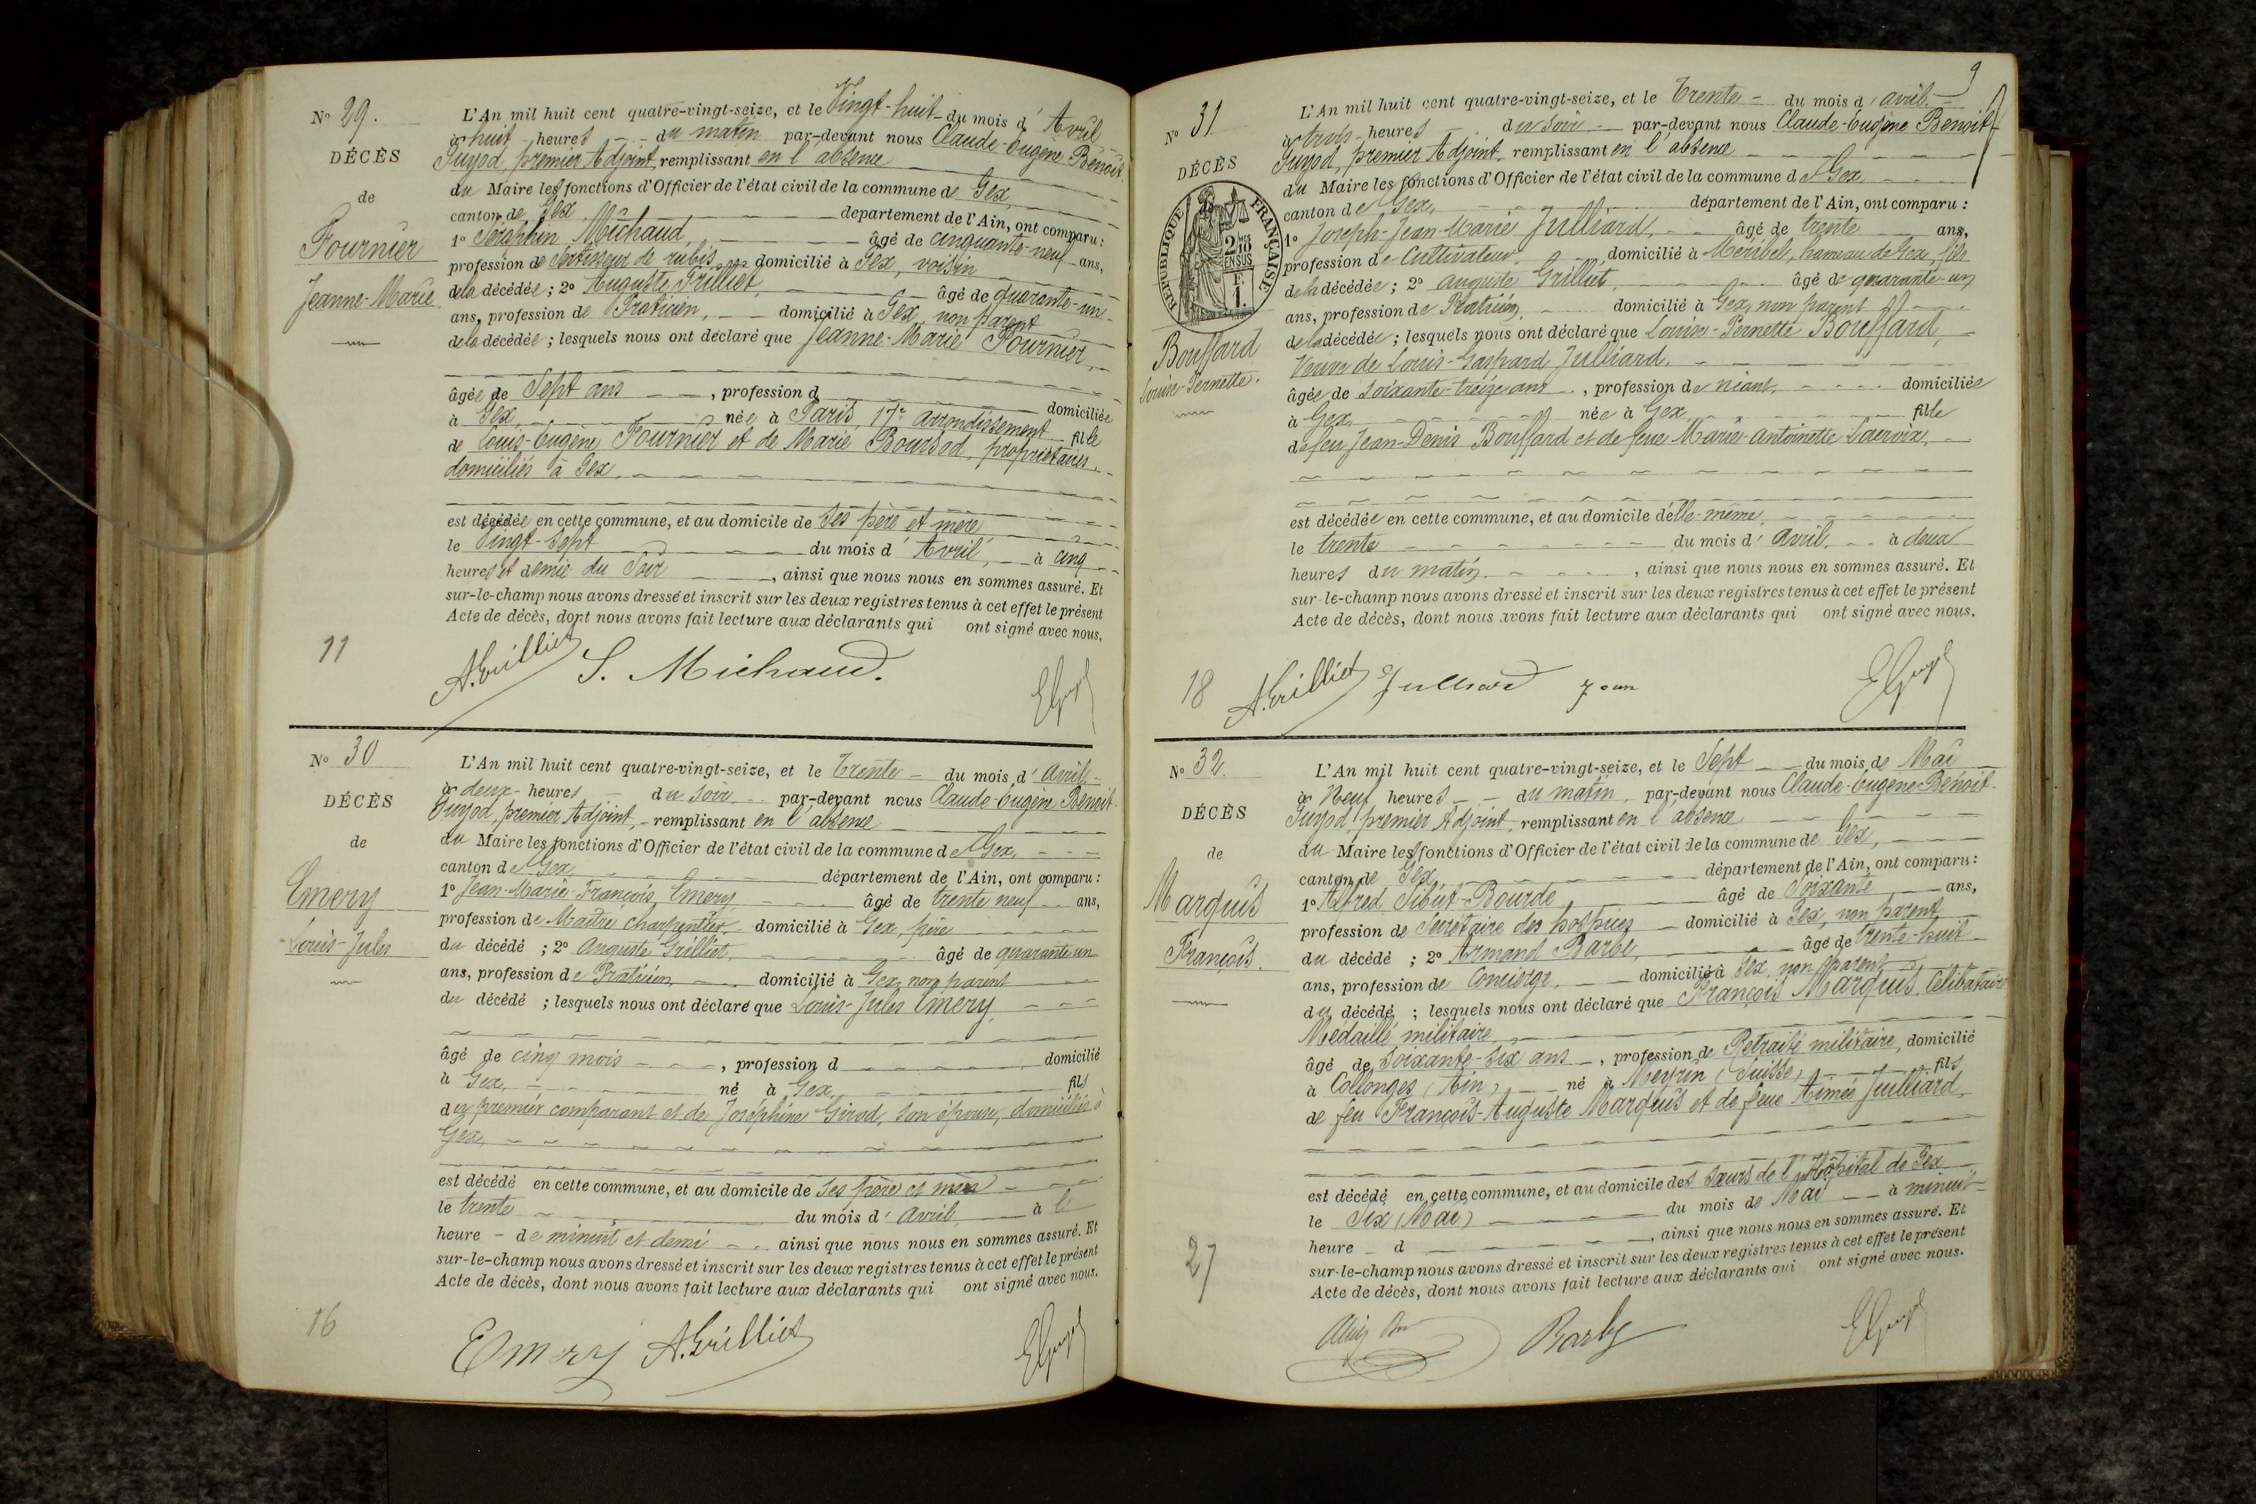 N° 29.
DÉCÈS
de
Fournier
Jeanne-Marie
L'An mil huit cent quatre-vingt-seize, et le Vingt-huit du mois d'Avril
à huit heures du matin par-devant nous Claude-Eugène-Benoit
Guyod, premier Adjoint, remplissant en l'absence
du Maire les fonctions d'Officier de l'état civil de la commune de Gex,
canton de Gex département de l'Ain, ont comparu :
1° Séraphin Michaud, âgé de cinquante-neuf ans,
profession de Sertisseur de rubis domicilié à Gex, voisin
de la décédée ; 2° Auguste Grilliet, âgé de quarante-un
ans, profession de Praticien, domicilié à Gex, non parent
de la décédée ; lesquels nous ont déclaré que Jeanne-Marie Fournier,
âgée de Sept ans , profession d domiciliée
à Gex, née à Paris, 17e arrondissement fille
de Louis-Eugène Fournier et de Marie Boursod, propriétaires
domiciliés à Gex,
est décédée en cette commune, et au domicile de Ses père et mère
le Vingt-Sept du mois d'Avril, à cinq
heures et demie du Soir , ainsi que nous nous en sommes assuré. Et
sur-le-champ nous avons dressé et inscrit sur les deux registres tenus à cet effet le présent
Acte de décès, dont nous avons fait lecture aux déclarants qui ont signé avec nous.
11
A. Grilliet S. Michaud. EGuyod
N° 30
DÉCÈS
de
Emery
Louis-Jules
L'An mil huit cent quatre-vingt-seize, et le Trente du mois d'Avril
à deux heures du soir par-devant nous Claude-Eugène Benoit
Guyod, premier Adjoint, remplissant en l'absence
du Maire les fonctions d'Officier de l'état civil de la commune de Gex,
canton de Gex, département de l'Ain, ont comparu :
1° Jean-Marie-François Emery âgé de trente neuf ans,
profession de Maître charpentier domicilié à Gex, père
du décédé ; 2° Auguste Grilliet, âgé de quarante-un
ans, profession de Praticien, domicilié à Gex, non parent
du décédé ; lesquels nous ont déclaré que Louis-Jules Emery,
âgé de cinq mois , profession d domicilié
à Gex, né à Gex, fils
du premier comparant et de Joséphine Girod, son épouse, domiciliés à
Gex,
est décédé en cette commune, et au domicile de Ses père et mère
le trente du mois d'avril à l
heure de minuit et demi ainsi que nous nous en sommes assuré. Et
sur-le-champ nous avons dressé et inscrit sur les deux registres tenus à cet effet le présent
Acte de décès, dont nous avons fait lecture aux déclarants qui ont signé avec nous.
16
Emery A. Grilliet EGuyod
9
N° 31
DÉCÈS
de
RÉPUBLIQUE FRANÇAISE
2 10MES EN SUS
F. 1.
Bouffard
Louise-Pernette.
L'An mil huit cent quatre-vingt-seize, et le Trente du mois d'avril
à trois heures du soir par-devant nous Claude-Eugène Benoit
Guyod, premier Adjoint, remplissant en l'absence
du Maire les fonctions d'Officier de l'état civil de la commune de Gex
canton de Gex, département de l'Ain, ont comparu :
1° Joseph-Jean-Marie Julliard, âgé de trente ans,
profession de Cultivateur, domicilié à Méribel, hameau de Gex, fils
de la décédée ; 2° Auguste Grilliet, âgé de quarante-un
ans, profession de Praticien, domicilié à Gex, non parent
de la décédée ; lesquels nous ont déclaré que Louise-Pernette Bouffard,
Veuve de Louis-Gaspard Julliard,
âgée de soixante-treize ans , profession de néant, domiciliée
à Gex, née à Gex, fille
de feu Jean-Denis Bouffard et de feue Marie-Antoinette Lacroix,
est décédée en cette commune, et au domicile d'elle-même,
le trente du mois d'avril à deux
heures du matin , ainsi que nous nous en sommes assuré. Et
sur-le-champ nous avons dressé et inscrit sur les deux registres tenus à cet effet le présent
Acte de décès, dont nous avons fait lecture aux déclarants qui ont signé avec nous.
18
A. Grilliet Julliard EGuyod
N° 32.
DÉCÈS
de
Marquis
François.
L'An mil huit cent quatre-vingt-seize, et le Sept du mois de Mai
à Neuf heures du matin par-devant nous Claude-Eugène Benoit-
Guyod, premier Adjoint, remplissant en l'absence
du Maire les fonctions d'Officier de l'état civil de la commune de Gex,
canton de Gex, département de l'Ain, ont comparu :
1° Alfred Sibut-Bourde âgé de Soixante ans,
profession de Secrétaire des hospices domicilié à Gex, non parent
du décédé ; 2° Armand Barbe, âgé de trente-huit
ans, profession de Concierge, domicilié à Gex, non parent
du décédé ; lesquels nous ont déclaré que François Marquis, Célibataire
Médaillé militaire
âgé de soixante-six ans , profession de Retraité militaire, domicilié
à Collonges (Ain) né à Meyrin (Suisse) fils
de feu François-Auguste Marquis et de feue Aimée Julliard,
est décédé en cette commune, et au domicile des Sœurs de l'Hôpital de Gex
le Six (Mai) du mois de Mai à minuit
heure d , ainsi que nous nous en sommes assuré. Et
sur-le-champ nous avons dressé et inscrit sur les deux registres tenus à cet effet le présent
Acte de décès, dont nous avons fait lecture aux déclarants qui ont signé avec nous.
27
Barbe EGuyod